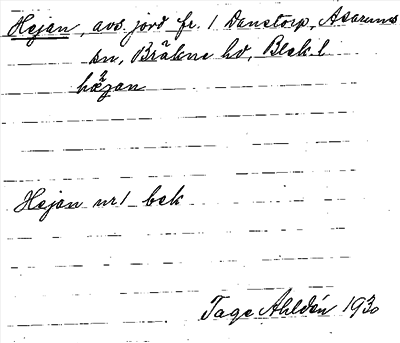 Hejan, avs. jord fr. 1 Danstorp, Asarums
sn, Bräkne hd, Blek. l
hæjan
Hejan nr 1 bek
Tage Ahldén 1930